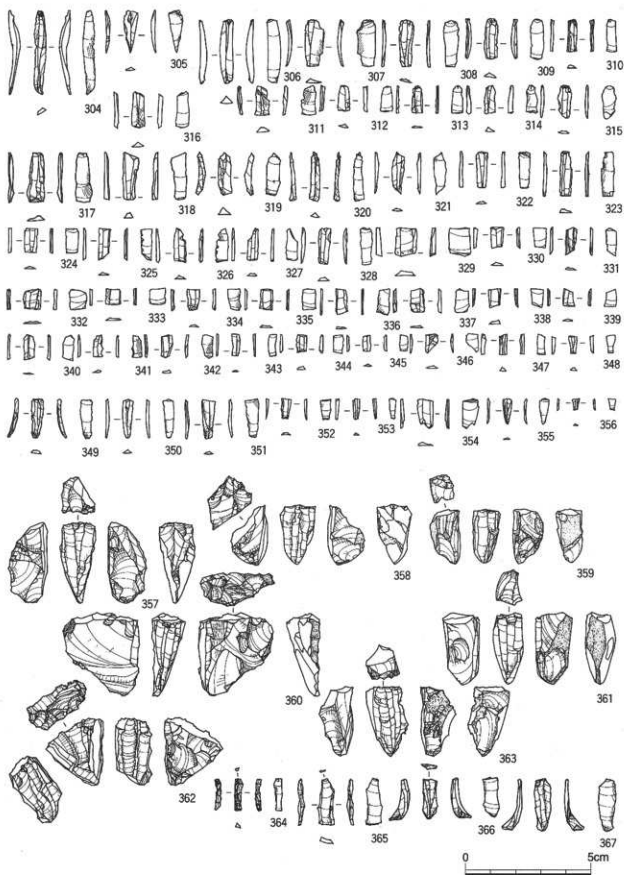 304 305 306 307 308 309 310
316 311 312 313 314 315
317 318 319 320 321 322 323
324 325 326 327 328 329 330 331
332 333 334 335 336 337 338 339
340 341 342 343 344 345 346 347 348
349 350 351 352 353 354 355 356
357 358 359
360 361
362 363
364 365 366 367
0 5cm